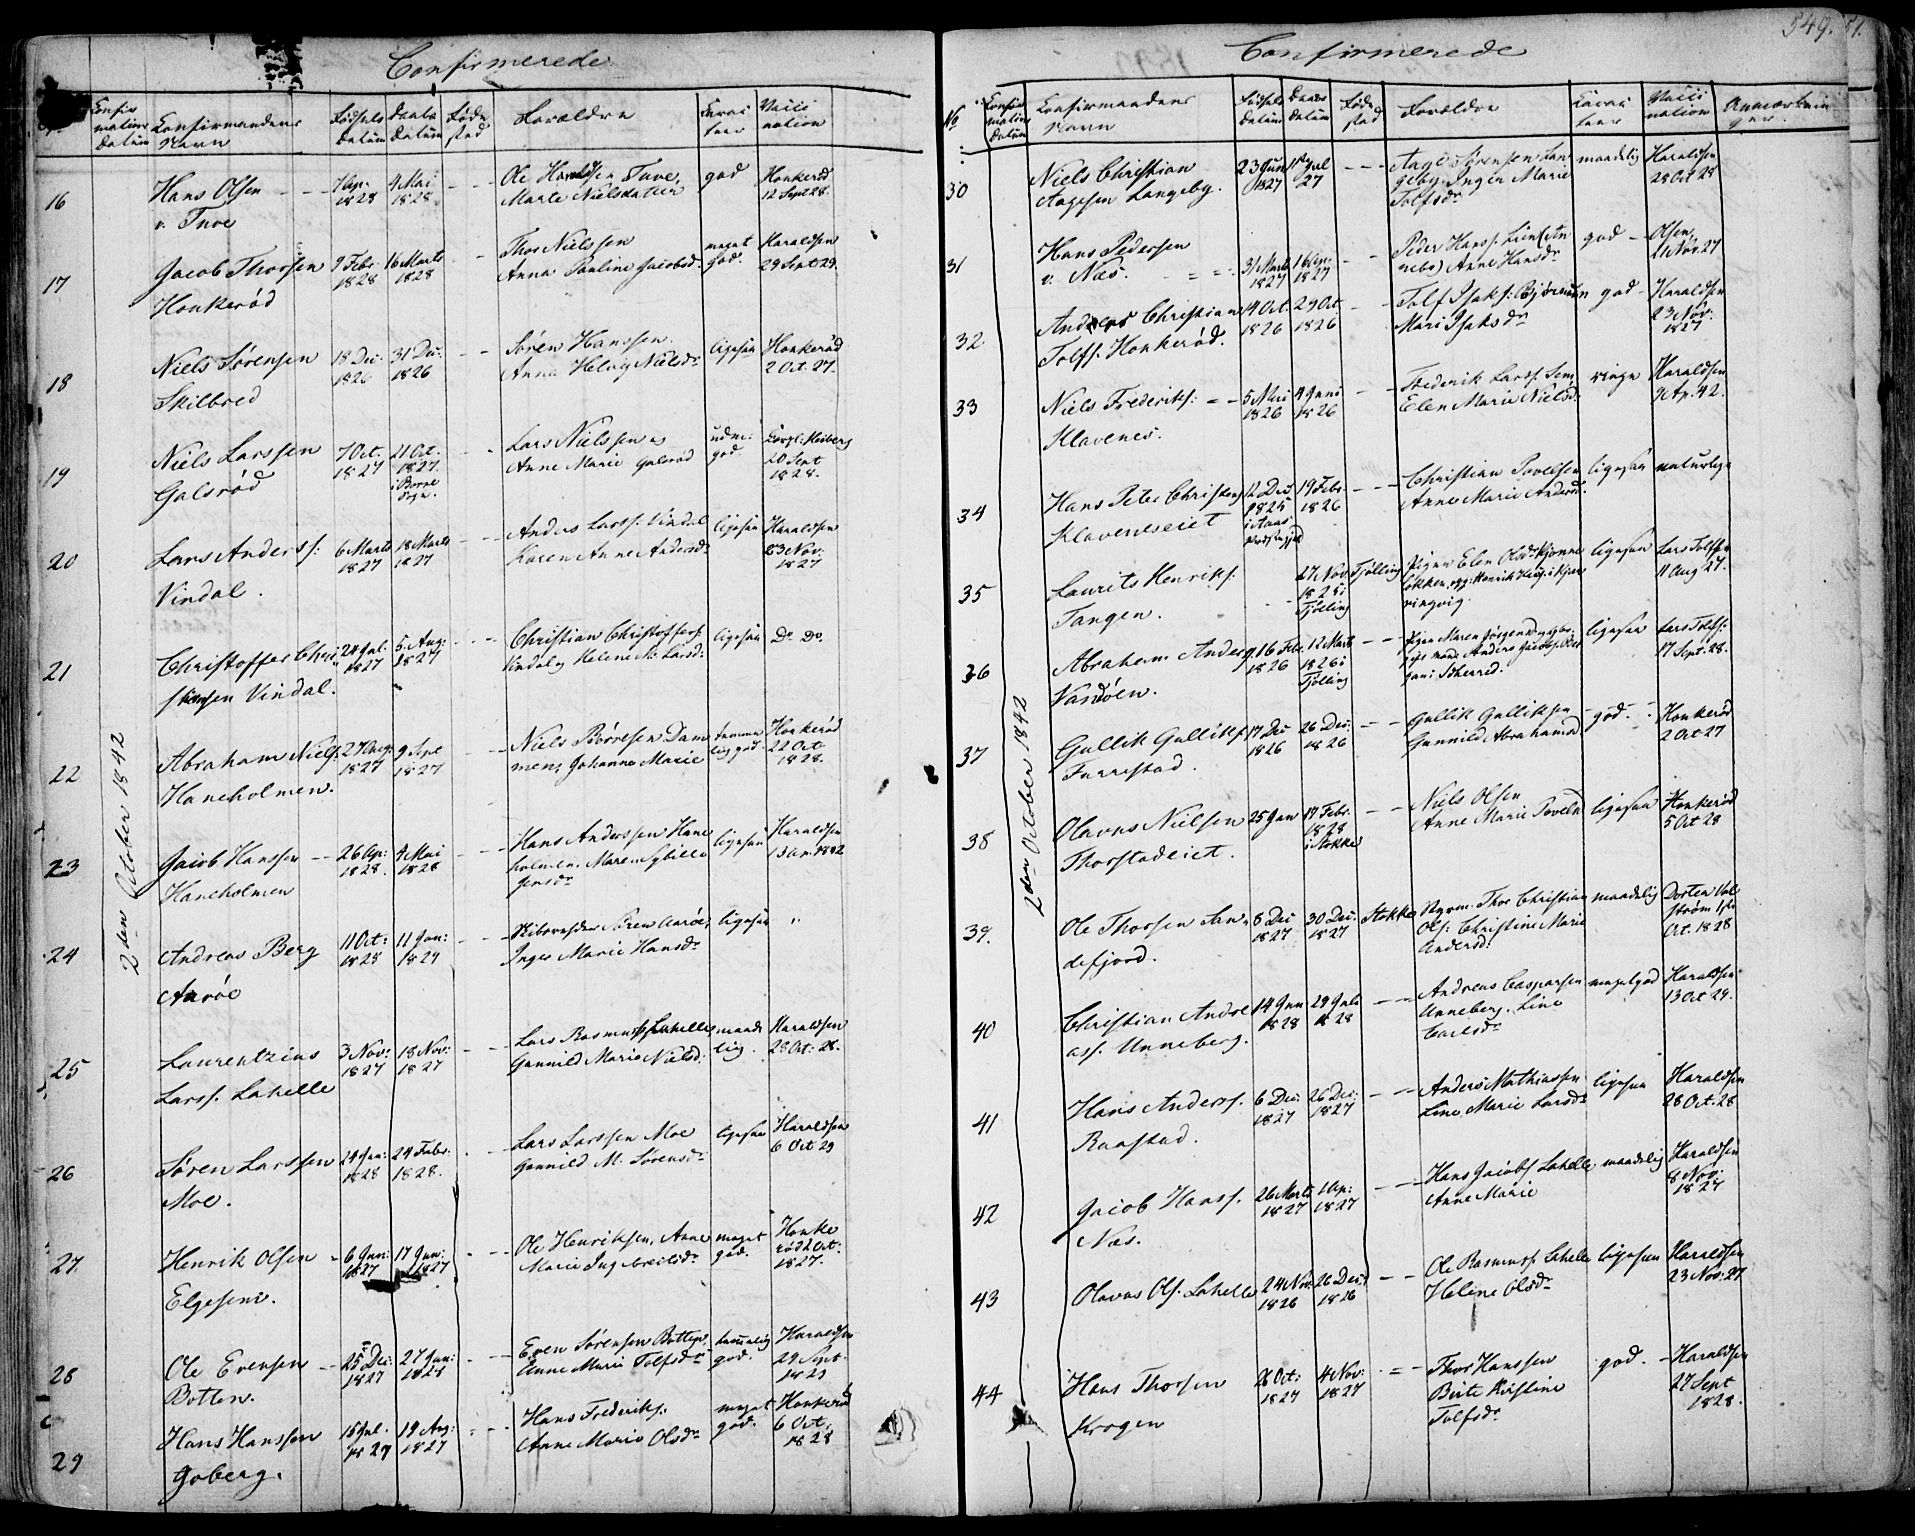 Confirmerede
Confirmationsdatum Confirmandens Navn Fødselsdatum Daabsdatum Fødested Forældre Karacteer Vaccination
2den October 1842
16 Hans Olsen v. Tuve 7 Ap: 1828 4 Mai 1828 Ole Hansen Tuve, Marte Nielsdatter god Honkerød 12 Sept 28.
17 Jacob Thorsen Honkerød 9 Febr. 1828 16 Marts 1828 Thor Nielssen Anna Pauline Jacobsdr meget god. Haraldsen 29 Sept 29.
18 Niels Sørensen Skilbred 18 Dec: 1826 31 Dec: 1826 Søren Hanssen Anna Helvig Nielsdr ligesaa Honkerød 2 Oct. 27.
19 Niels Larssen Galsrød 7 Oct. 1827 21 Oct. 1827. i Borre Sogn. Lars Nielssen og Anne Marie Galsrød udm: god Heiberg 20 Sept 1828.
20 Lars Anderss: Vindal. 6 Marts 1827 18 Marts 1827 Anders Larss: Vindal Karen Anne Andersdr ligesaa Haraldsen 23 Nov: 1827
21 Christoffer Christiansen Vindal. 24 Jul. 1827 5. Aug: 1827 Christian Christoffers: Vindal og Helene M. Larsd: ligesaa Do Do.
22 Abraham Niels: Haneholmen. 27 Aug. 1827 9 Spt 1827 Niels Børresen Dammen, Johanne Marie temmelig god. Honkerød 22 Oct 1828.
23 Jacob Hanssen Haneholmen 26 Ap: 1828. 4 Mai 1828 Hans Anderssen Haneholmen. Maren Sybille Jensdr ligesaa Haraldsen 1842
24 Andreas Berg Aarøe 11 Oct: 1828 11 Jan: 1829 Søren Aarøe, Inger Marie Hansdr ligesaa "
25 Laurentzius Larss. Lahelle 3 Nov: 1827 18 Nov: 1827 Lars Rasmuss. Lahelle, Gunnild Marie Nielsd: maadelig. Haraldsen 28 Oct: 28.
26 Søren Larssen Moe. 24 Jan: 1828 24 Febr: 1828. Lars Larssen Moe Gunnild M. Sørensdr ligesaa Haraldsen 6 Oct 29
27 Henrik Olsen Elgesem. 6 Jan: 1827 17 Jun: 1827 Ole Henriksen, Anne Marie Ingebretsdr meget god. Honkerød 2 Oct: 1827.
28 Ole Evensen Botten. 25 Dec: 1827 27 Jan: 1828 Even Sørensen Botten, Anne Marie Tolfsdr temmelig god. Haraldsen 29 Sept. 1829
29 Hans Hanssen Goberg. 15 Jul. 1827 19 Aug: 1827 Hans Frederiks: Anne Marie Olsdr meget god. Honkerød 6 Oct. 1828
549.
Confirmerede
No Confirmations Datum Confirmandens Navn Fødselsdatum Daabsdatum Fødested Forældre Karacteer Vaccination Anmærkninger.
2den October 1842
30 Niels Christian Aagesen Langeby. 23 Jun 1827 1 Jul 27 Aage Sørensen Langeby. Inger Marie Tolfsdr maadelig Haraldsen 28 Oct 28
31 Hans Pedersen v. Næs. 31 Marts 1827 16 Ap: 1827 Peder Hanss. Lien Anne Hansdr god Olsen, 21 Nov. 27
32 Anders Christian Tolfs. Honkerød. 14 Oct. 1826 29 Oct 1826 Tolf Isaks: Bjørnum Mari Isaksdr god Haraldsen 23 Nov: 1827
33 Niels Frederiks: Klavenes. 5 Mai 1826 4 Juni 1826 Frederik Larss. Sem, Elen Marie Nielsd. ringe Haraldsen 9 Ap. 42.
34 Hans Peter Christens Klaveneseiet 12 Dec 1825 i Aas Præstegjeld 19 Febr. 1826 Christian Povelsen Anne Marie Andersd: ligesaa naturlige
35 Laurits Henriks: Tangen. 27 Nov. 1825 i Tjølling Tjølling Pigen Elen Olsdr ligesaa Lars Tolfsen 11 Aug 27.
36 Abraham Anders Vandøen. 16 Feb. 1826 12 Marts 1826 i Tjølling Pigen Maren Jørgensd Anders ligesaa Lars Tolfs: 17 Sept. 28.
37 Gullik Gulliks. Furrestad. 17 Dec 1826 26 Dec: 1826 Gullik Gulliksen Gunnild Abrahamsd god. Honkerød 2 Oct 27
38 Olavus Nielsen Thorstadeiet. 25 Jan 17 Febr. 1828 i Stokke Niels Olsen Anne Marie Povelsd ligesaa Honkerød 5 Oct 28
39. Ole Thorsen Sandefjord. 8 Dec 1827 30 Dec: 1827 Stokke Thor Christian Ols: Christine Marie Andersd: maadelig Dorten Valstrøm Oct. 1828
40 Christian Andreass. Unneberg. 14 Jun 1828 29 Jul: 1828 Andreas Caspersen Unneberg. Line Carlsdr megetgod Haraldsen 13 Oct 29.
41 Hans Anderss. Raastad. 6 Dec: 1827 26 Dec: 1827 Anders Mathiassen Line Marie Larsdr ligesaa Haraldsen 28 Oct. 28
42 Jacob Hanss. Næs. 26 Marts 1827 1 Ap: 1827 Hans Jacobs Lahelle. Anne Marie maadelig Haraldsen 8 Nov: 1827
43 Olavus Ols. Lahelle 24 Nov: 1826 26 Dec: 1826 Ole Rasmuss. Lahelle Helene Olsdr ligesaa Haraldsen 23 Nov: 27
44 Hans Thorsen Krogen 28 Oct: 1827 4 Nov: 1827 Thor Hanssen Birte Kirstine Tolfsdr god. Haraldsen 27 Sept 1828.